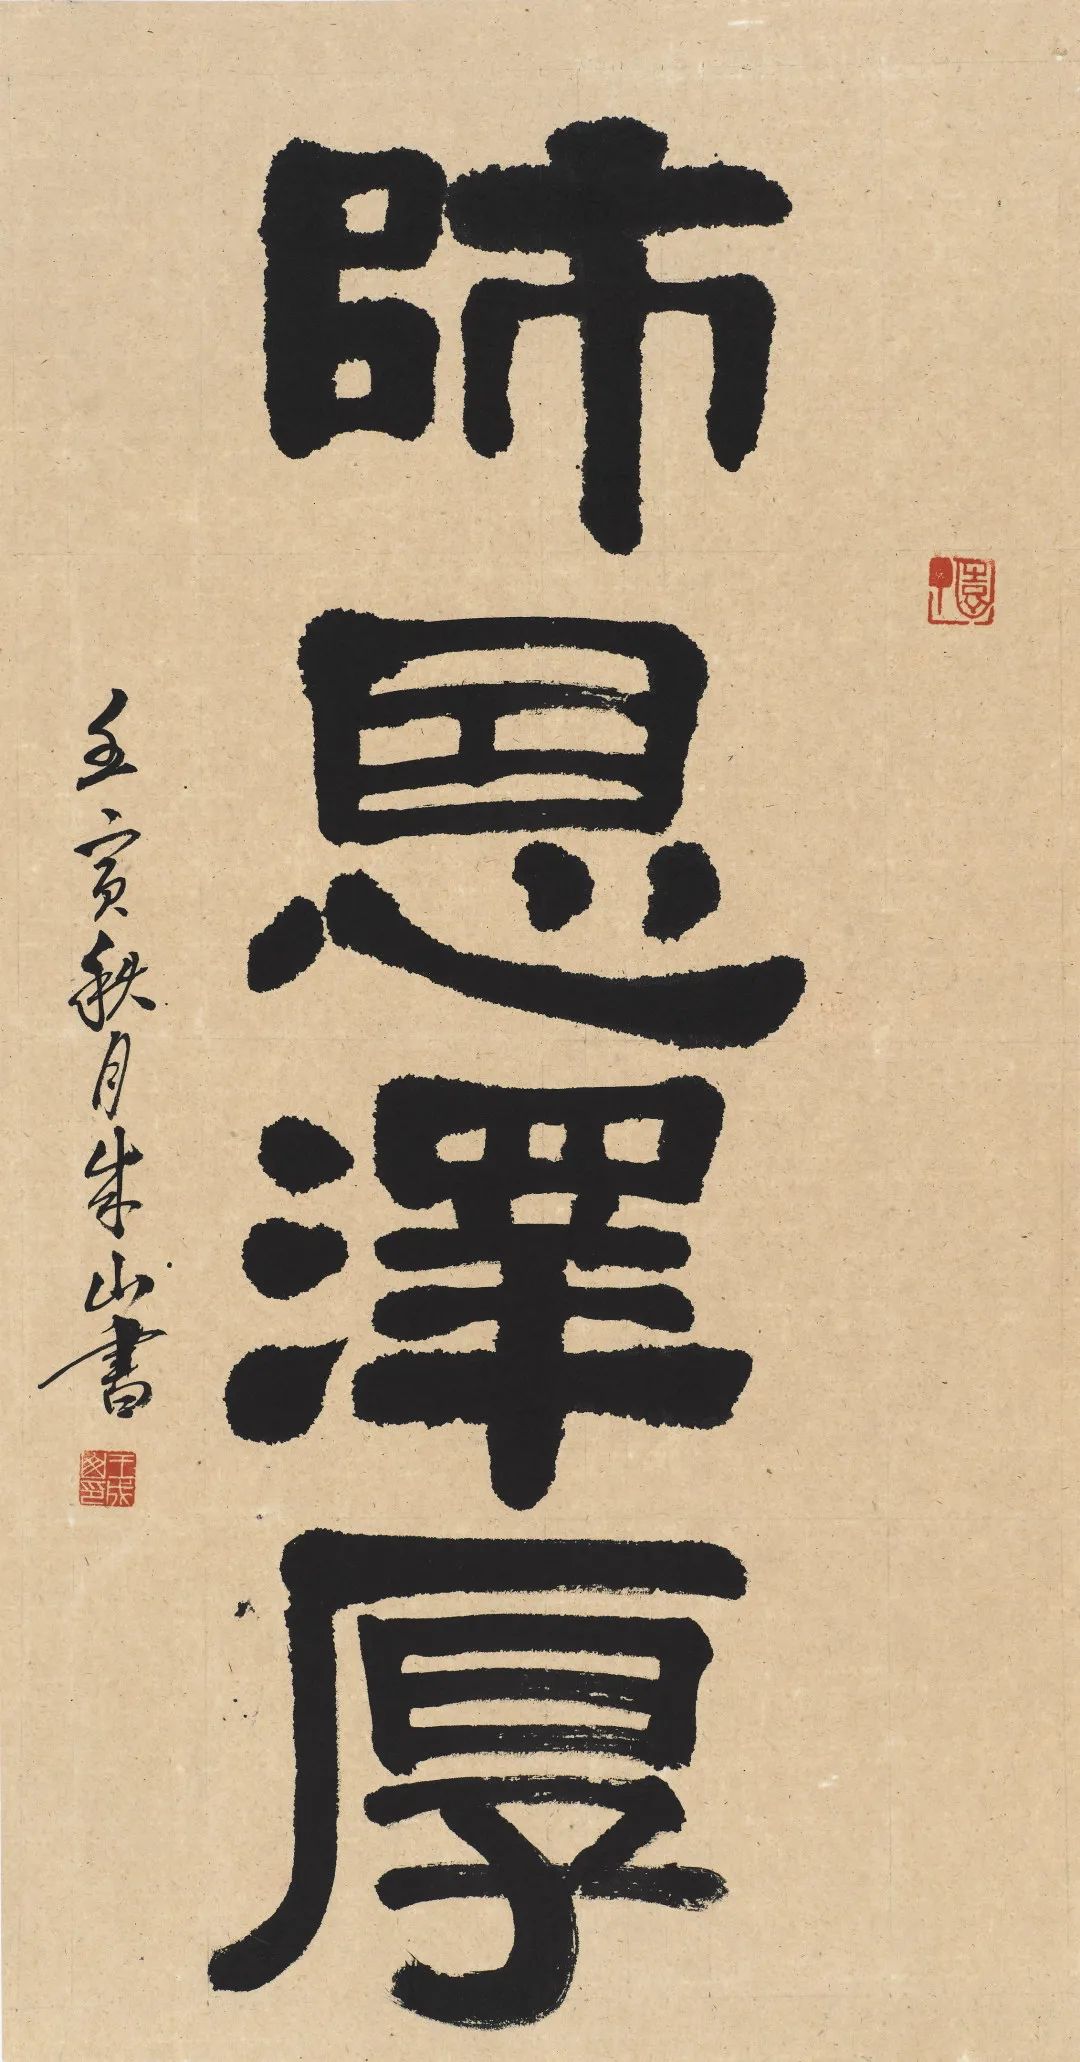 師恩澤厚
壬寅秋月朱山書